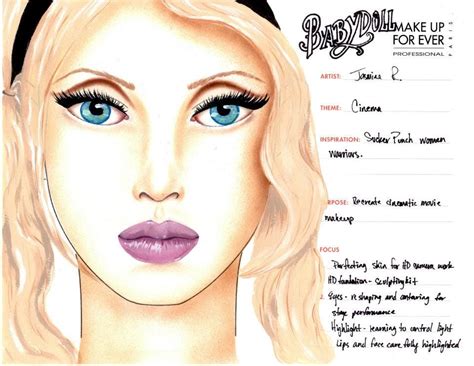 BABYDOLL
MAKE UP
FOR EVER
PROFESSIONAL
PARIS
ARTIST: R.
THEME: Cinema
INSPIRATION: Sucker Punch woman
Warriors.
RPOSE: Recreate cinematic movie
makeup
FOCUS
Perfecting skin for HD camera work
HD foundation - Sculpting kit
Eyes - reshaping and contouring for
stage performance
Highlight - learning to control light
Lips and face carefully highlighted